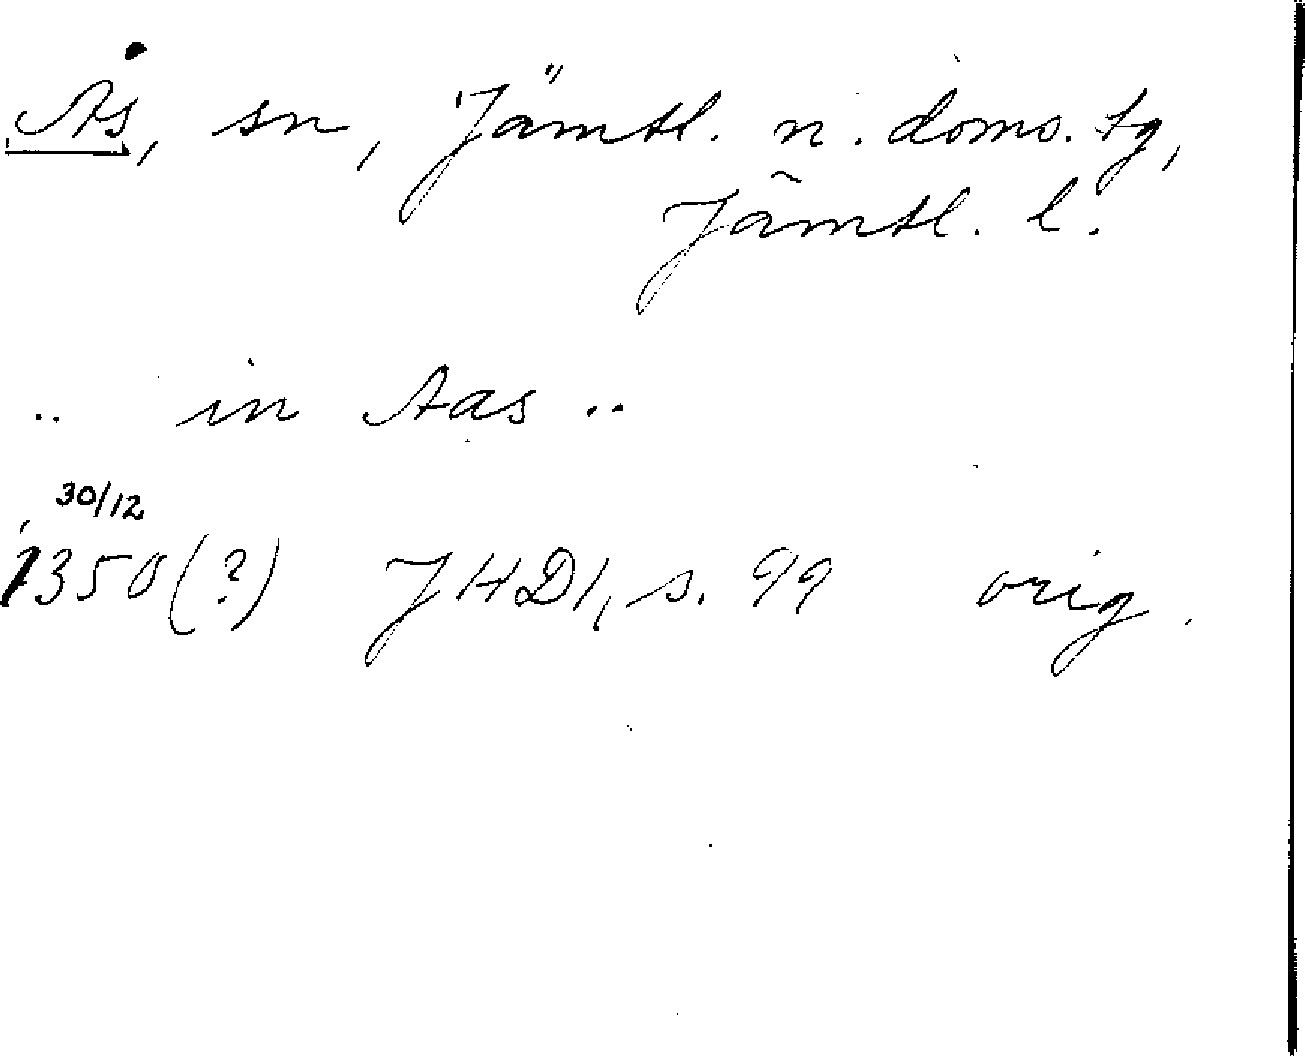 Ås, sn, Jämtl. n. doms. tg,
Jämtl. l.
.. in Aas ..
30/12
1350(?) JHD1, s. 99 orig.